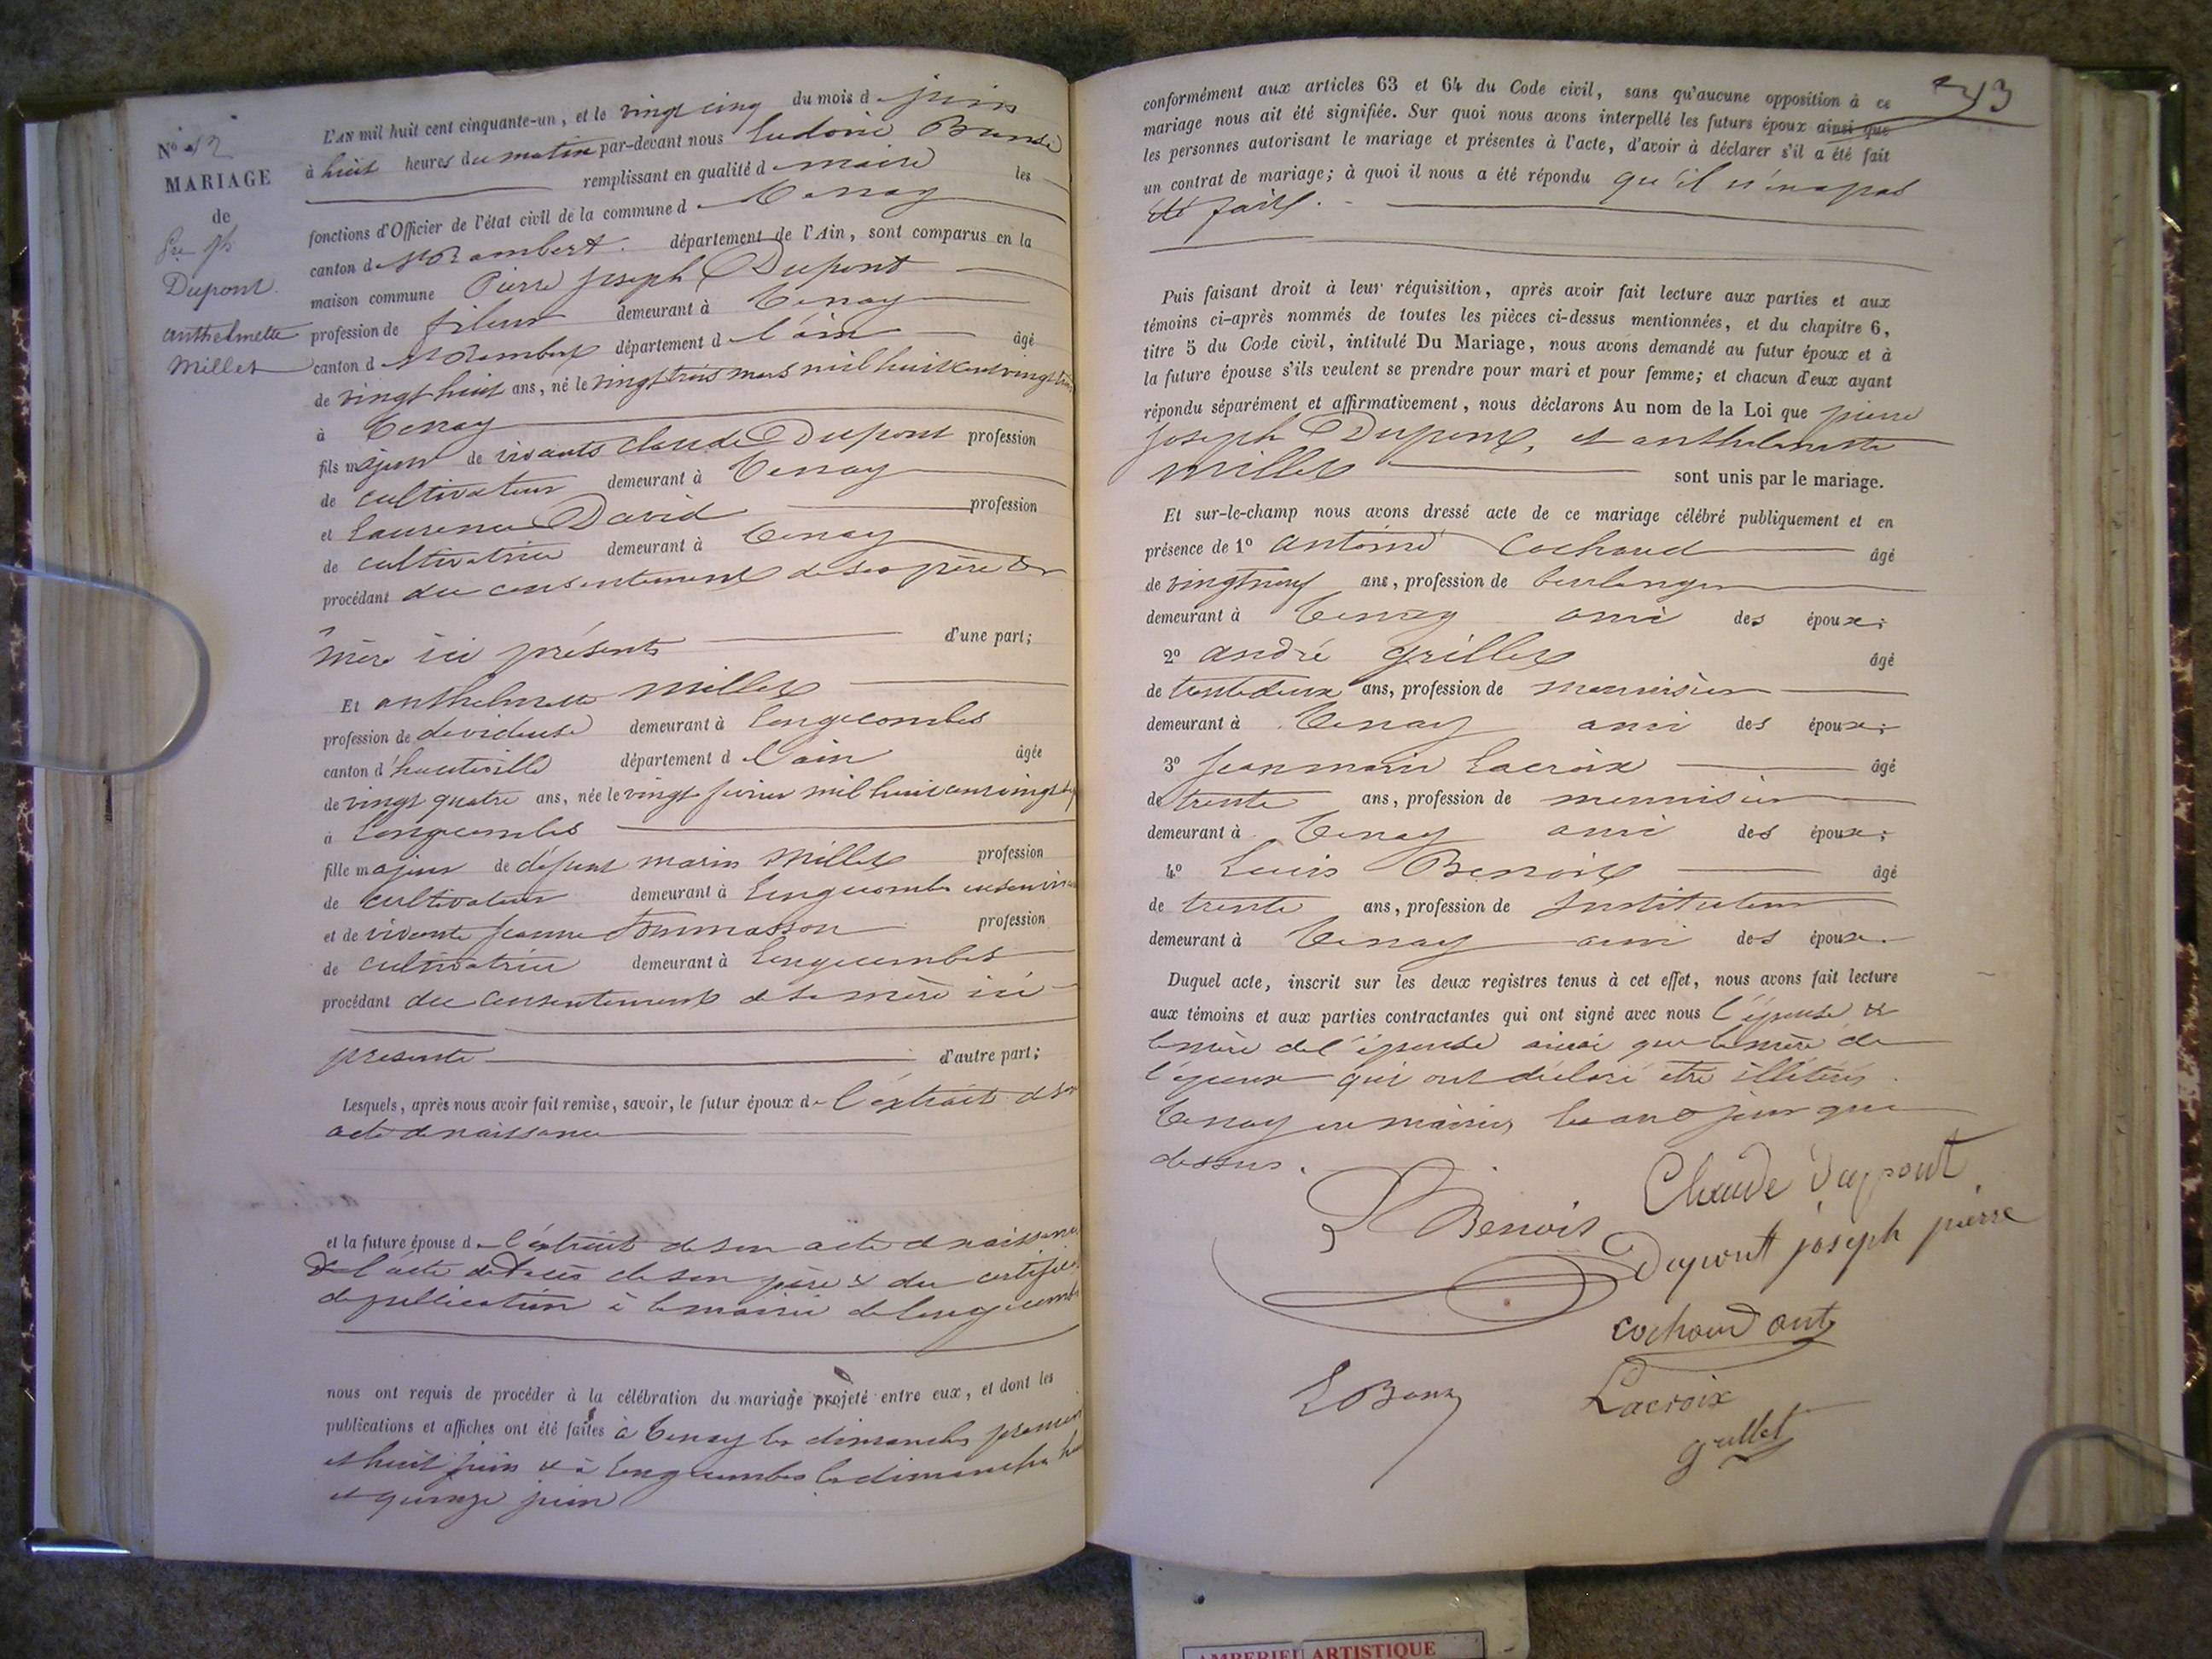 N° 12
MARIAGE
de
Pre Jh
Dupont
anthelmette
Millet
L'AN mil huit cent cinquante-un, et le vingt cinq du mois d juin
à huit heures du matin par-devant nous Ludovic
remplissant en qualité d maire les
fonctions d'Officier de l'état civil de la commune d Tenay
canton d St Rambert département de l'Ain, sont comparus en la
maison commune Pierre Joseph Dupont
profession de fileur demeurant à Tenay
canton d St Rambert département d l'ain âgé
de vingt huit ans, né le vingt trois mars mil huit cent vingt trois
à Tenay
fils majeur de vivants Claude Dupont profession
de cultivateur demeurant à Tenay
et Laurence David profession
de cultivatrice demeurant à Tenay
procédant du consentement de ses père &
mère ici présents d'une part;
Et anthelmette Millet
profession de devideuse demeurant à Longecombes
canton d'hauteville département d l'ain âgée
de vingt quatre ans, née le vingt fevrier mil huit cent vingt sept
à Longecombes
fille majeur de défunt marin Millet profession
de cultivateur demeurant à Longecombe en son vivant
et de vivante jeanne Tommasson profession
de cultivatrice demeurant à Longecombes
procédant du consentement de sa mère ici
presente d'autre part;
Lesquels, après nous avoir fait remise, savoir, le futur époux d l'extrait de son
acte de naissance
et la future épouse d l'extrait de son acte de naissance
de l'acte de decès de son père & du certificat
de publication à la mairie de longecombe
nous ont requis de procéder à la célébration du mariage projeté entre eux, et dont les
publications et affiches ont été faites à Tenay les dimanches premier
et huit juin & à Longecombes les dimanches huit
et quinze juin
213
conformément aux articles 63 et 64 du Code civil, sans qu'aucune opposition à ce
mariage nous ait été signifiée. Sur quoi nous avons interpellé les futurs époux ainsi que
les personnes autorisant le mariage et présentes à l'acte, d'avoir à déclarer s'il a été fait
un contrat de mariage; à quoi il nous a été répondu qu'il n'en a pas
été fait.
Puis faisant droit à leur réquisition, après avoir fait lecture aux parties et aux
témoins ci-après nommés de toutes les pièces ci-dessus mentionnées, et du chapitre 6,
titre 5 du Code civil, intitulé Du Mariage, nous avons demandé au futur époux et à
la future épouse s'ils veulent se prendre pour mari et pour femme; et chacun d'eux ayant
répondu séparément et affirmativement, nous déclarons Au nom de la Loi que pierre
joseph Dupont, et anthelmette
millet sont unis par le mariage.
Et sur-le-champ nous avons dressé acte de ce mariage célébré publiquement et en
présence de 1° antoine Cochaud âgé
de vingt neuf ans, profession de boulanger
demeurant à Tenay ami des époux;
2° andré grillet âgé
de trente deux ans, profession de menuisier
demeurant à Tenay ami des époux;
3° jean marie Lacroix âgé
de trente ans, profession de menuisier
demeurant à Tenay ami des époux;
4° Louis Benoit âgé
de trente ans, profession de Instituteur
demeurant à Tenay ami des époux.
Duquel acte, inscrit sur les deux registres tenus à cet effet, nous avons fait lecture
aux témoins et aux parties contractantes qui ont signé avec nous l'épouse &
la mère de l'épouse ainsi que la mère de
l'époux qui ont déclaré être illétérés.
Tenay en mairie, les an & jour que
dessus.
Benoit
Claude Dupont
Dupont joseph pierre
cochaud ant
Lacroix
grillet
AMBERIEU ARTISTIQUE